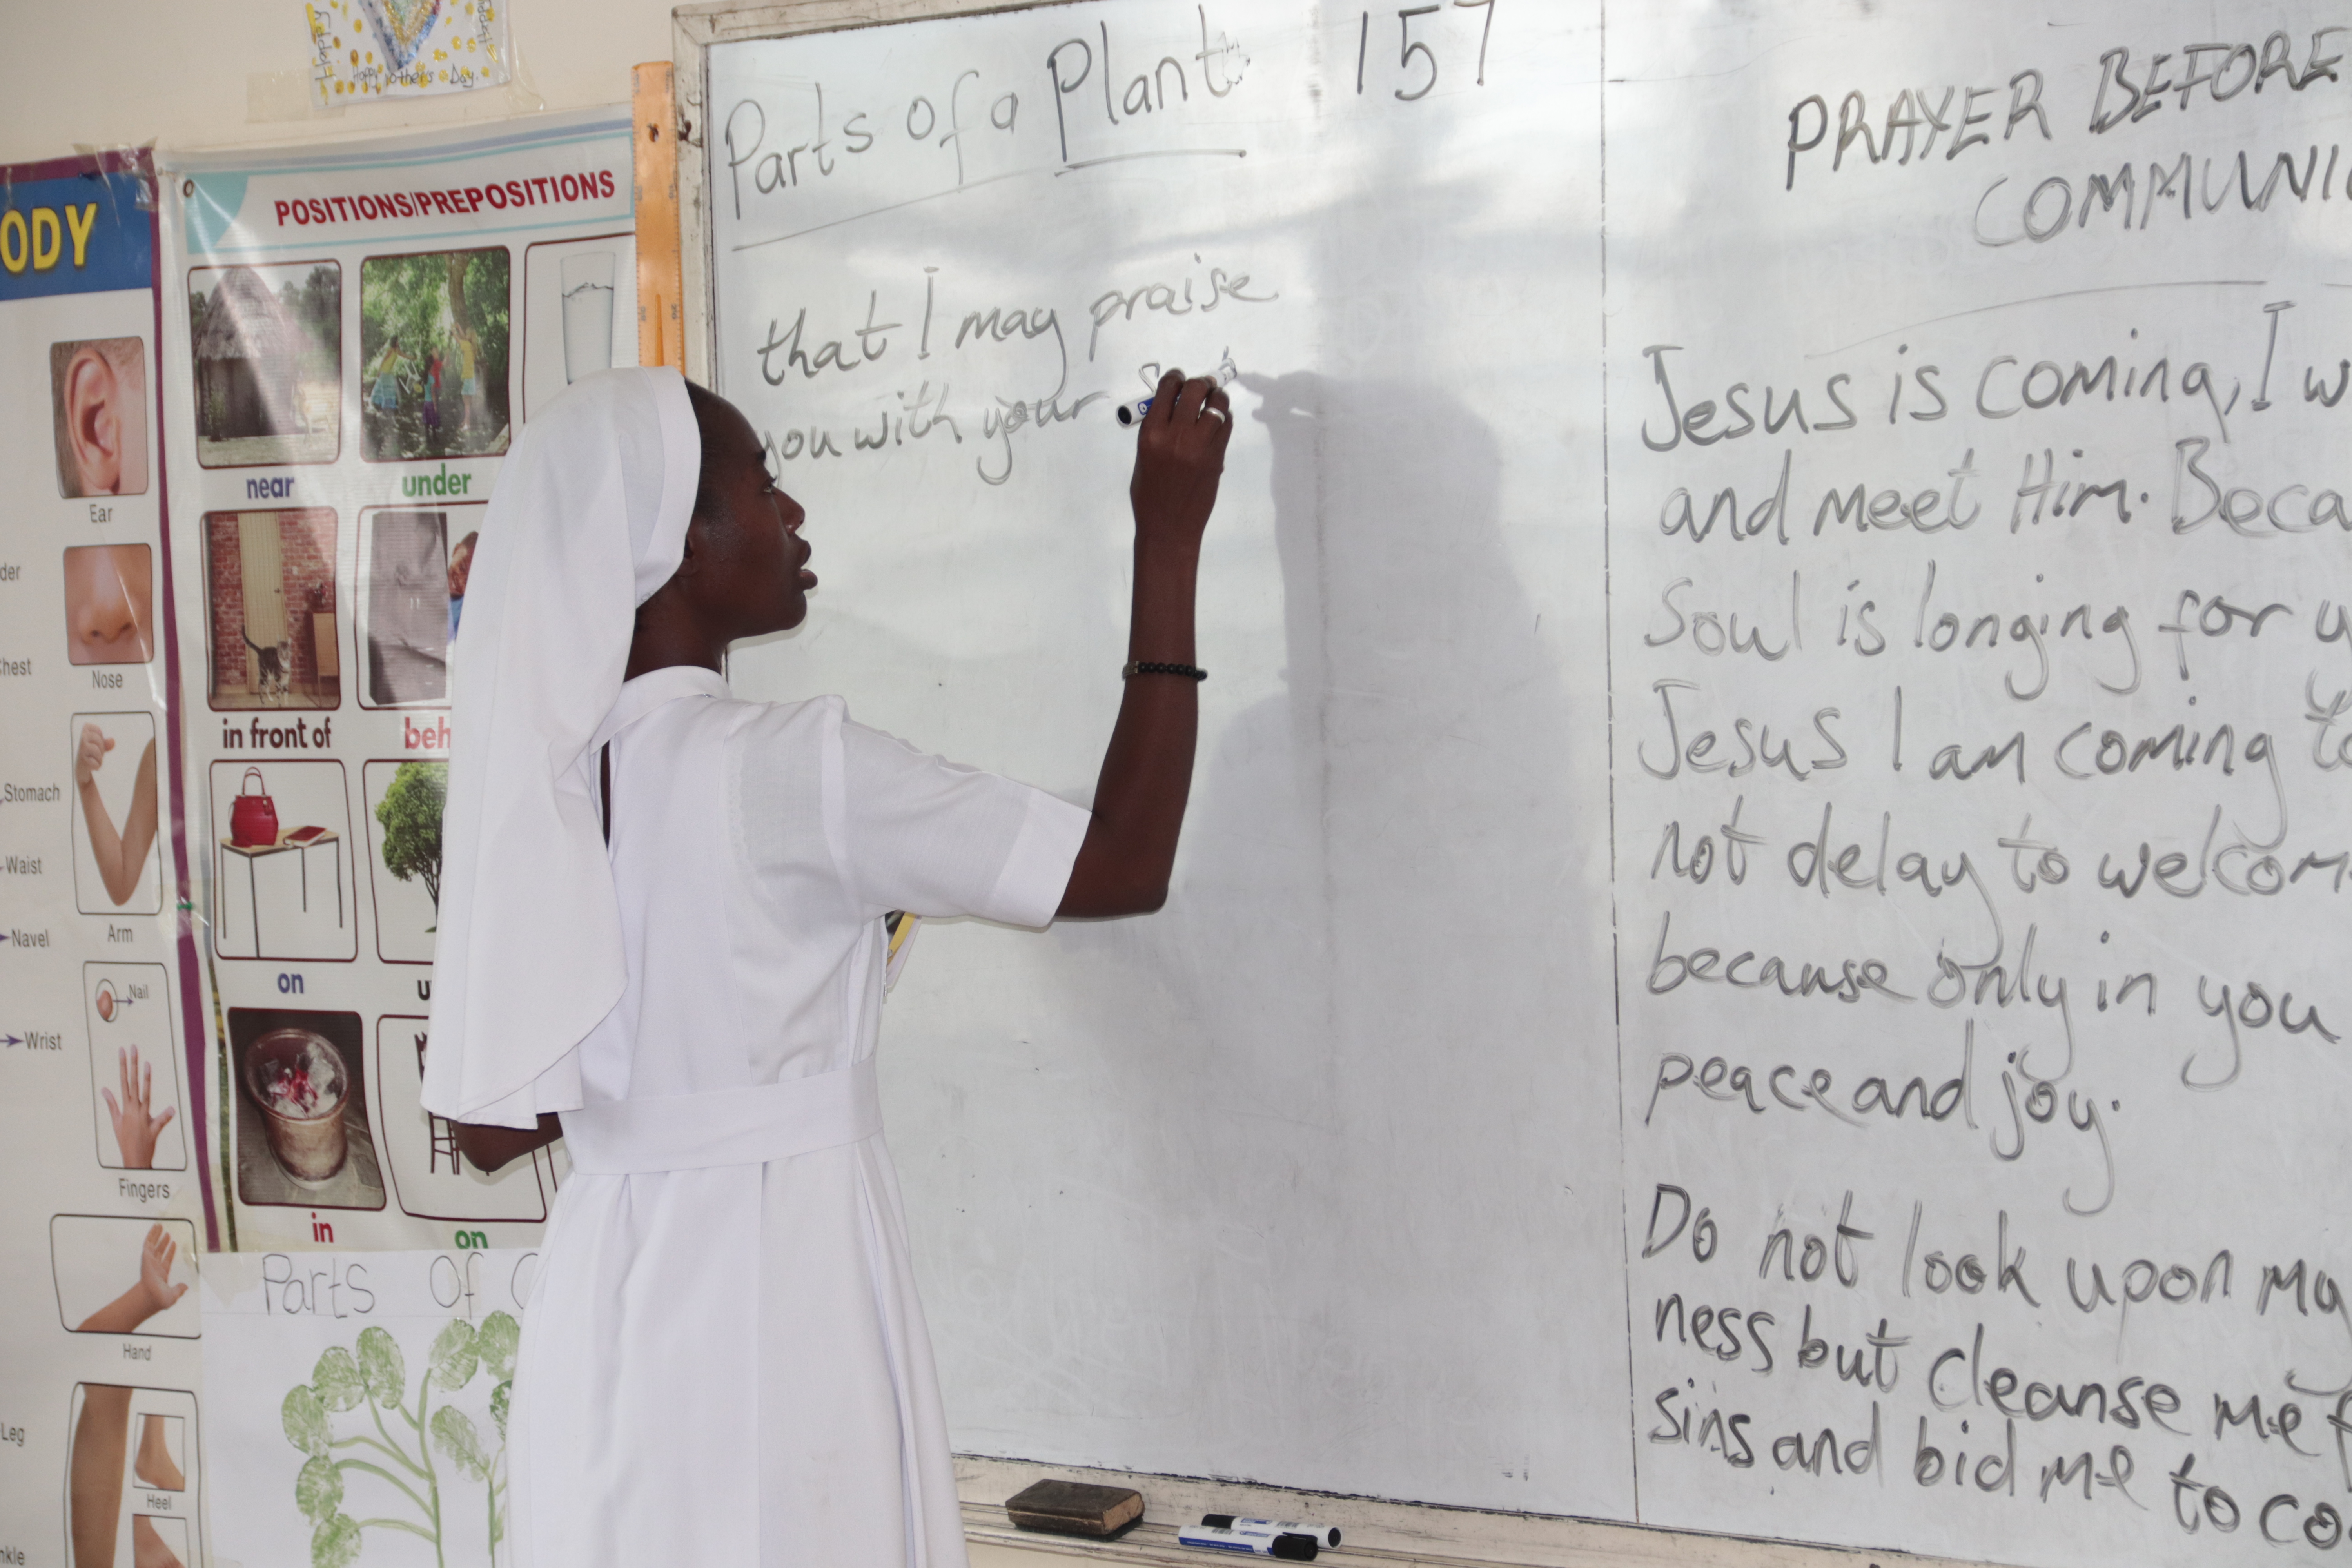 Happy
Happy
Happy Mother's Day.
ODY
Ear
der
Nose
Chest
Stomach
Arm
Waist
Navel
Nail
Wrist
Fingers
Hand
Leg
Heel
nkle
POSITIONS/PREPOSITIONS
near
under
in front of
beh
on
u
in
on
Parts Of
Parts of a Plant 157
that I may praise
you with your S
PRAYER BEFORE
COMMUNI
Jesus is coming, I w
and meet Him. Beca
Soul is longing for y
Jesus I am coming to
not delay to welcom
because only in you
peace and joy.
Do not look upon my
ness but cleanse me f
sins and bid me to co